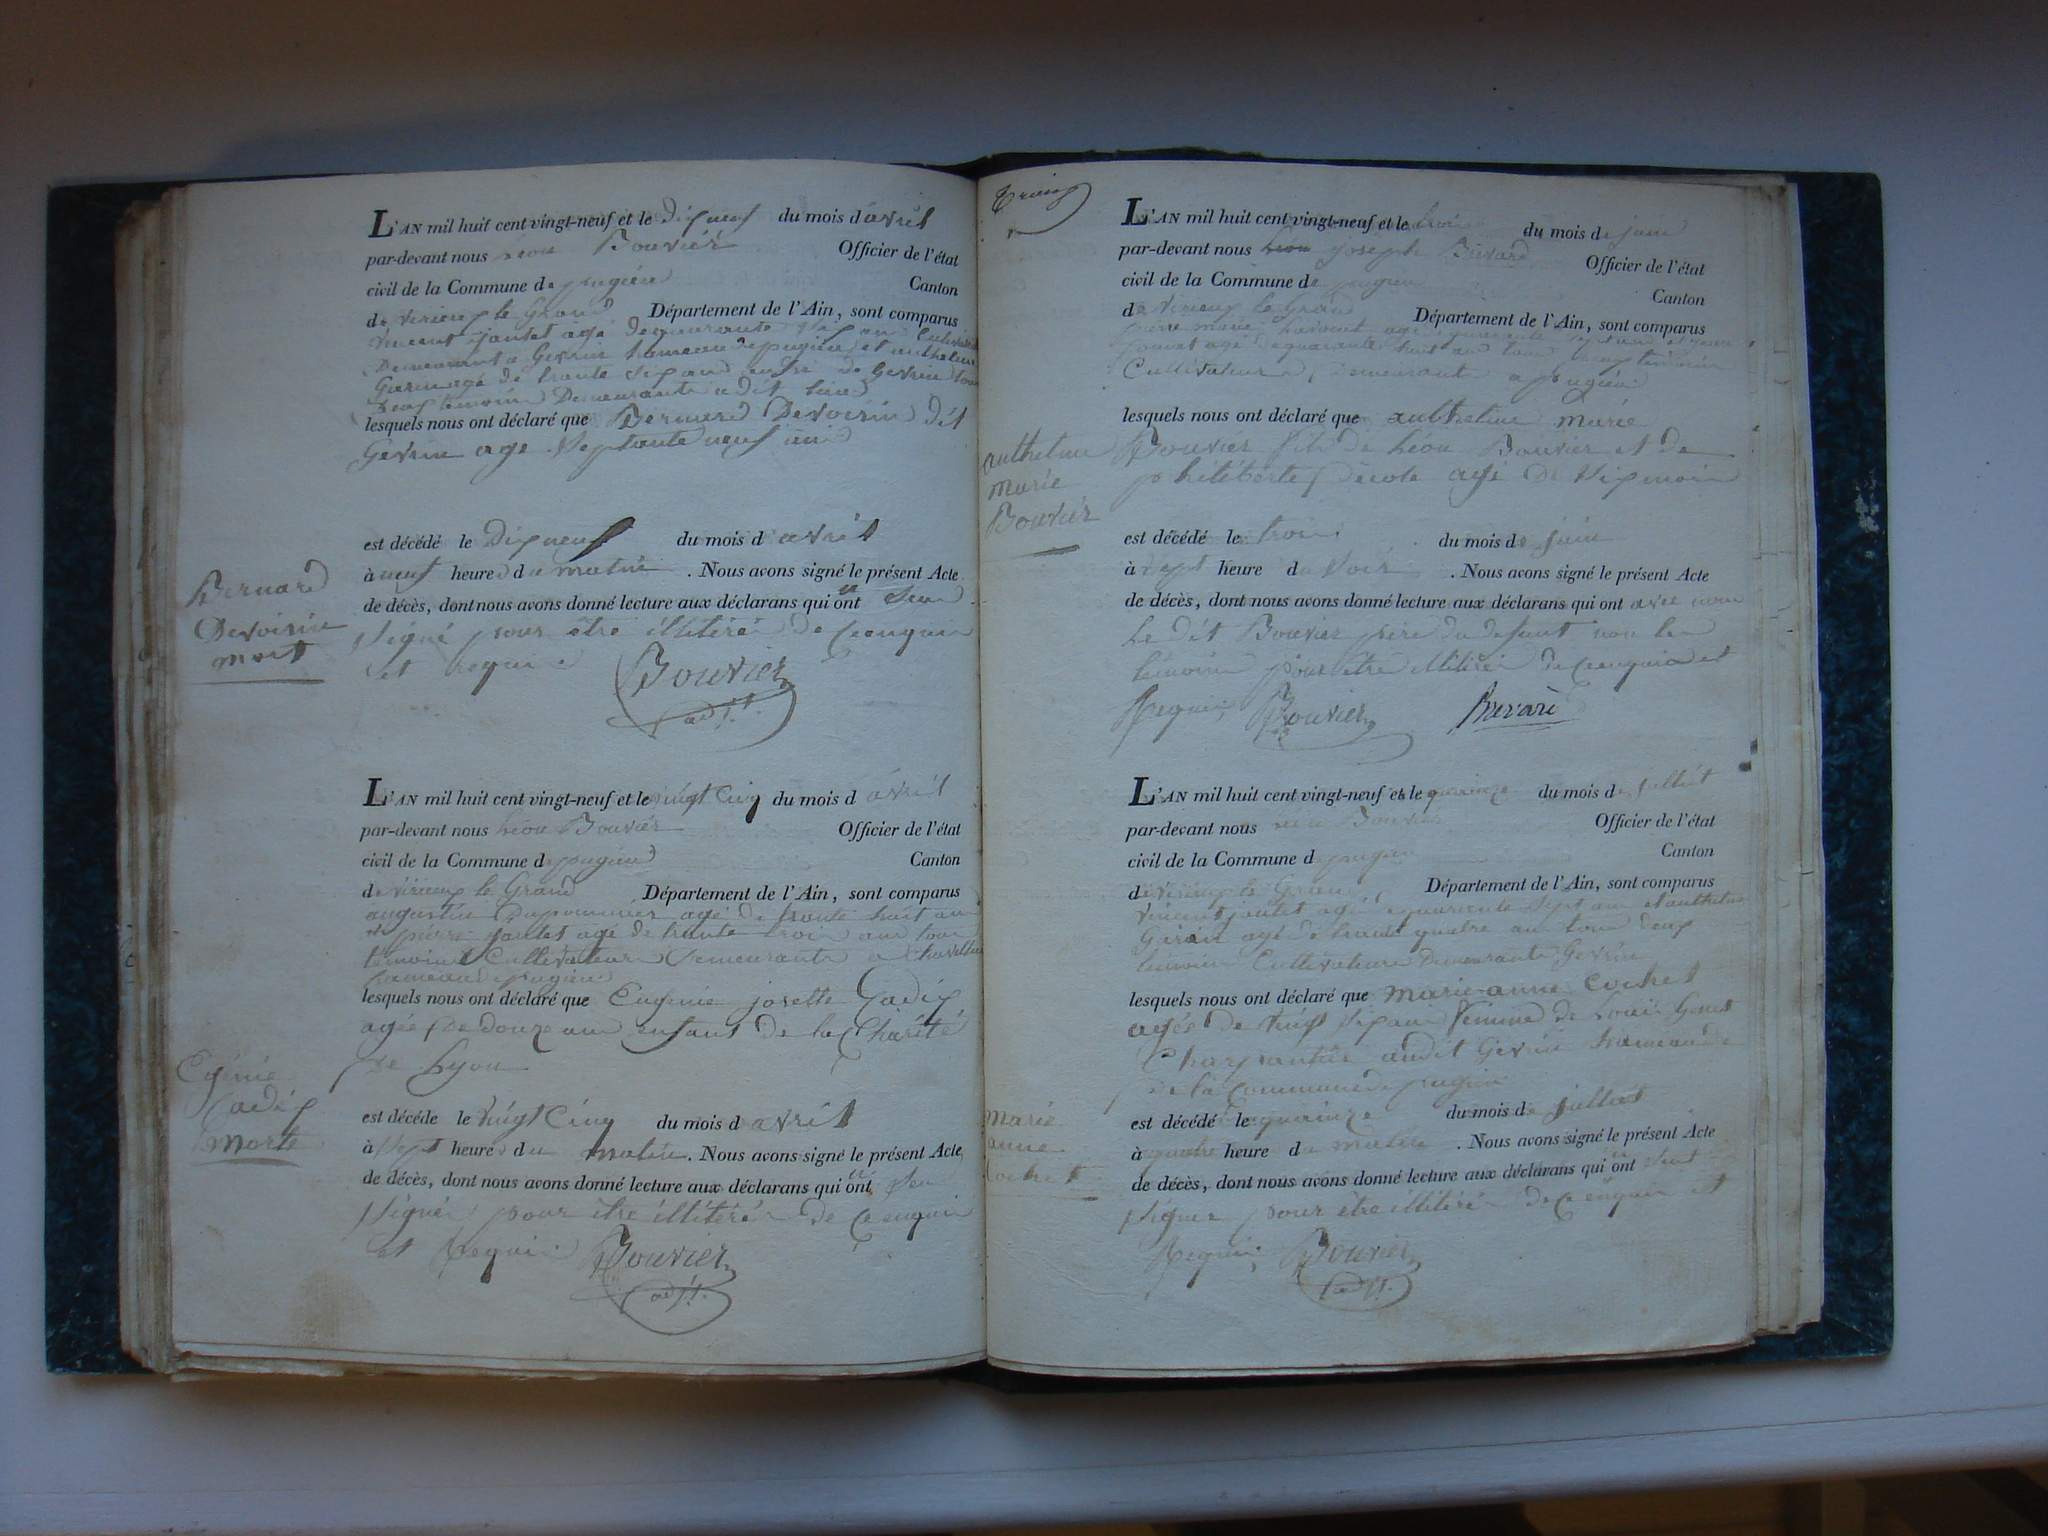 L'AN mil huit cent vingt-neuf et le Dixneuf du mois d'avril
par-devant nous Léon Bouvier Officier de l'état
civil de la Commune de pugieu Canton
de Virieux le Grand Département de l'Ain, sont comparus
Vincent jantet agé de quarante sept ans Cultivateur
Demeurant a Gevrin hameau de pugieu et anthelme
Garin agé de trante sep ans audit de Gevrin tous
deux temoins Demeurants a dit lieu
lesquels nous ont déclaré que Bernard Devoisin dit
Gevrin age Septante neuf ans
est décédé le Dixneuf du mois d'avril
à neuf heures du matin . Nous avons signé le présent Acte
de décès, dont nous avons donné lecture aux déclarans qui ont Seu
Signé pour être illitéré De Ce enquis
et requis Bouvier
adjt.
Bernard
Devoisin
mort
L'AN mil huit cent vingt-neuf et le vingt Cinq du mois d avril
par-devant nous Léon Bouvier Officier de l'état
civil de la Commune de pugieu Canton
de Virieux le Grand Département de l'Ain, sont comparus
augustin Dupommier agé de trante huit ans
et pierre jantet agé de trante trois ans tous
temoins Cultivateurs Demeurants a
hameau de pugieu
lesquels nous ont déclaré que Eugenie josette Cadix
agée De douze ans enfant de la Charité
De Lyon
est décéde le Vingt Cinq du mois d avril
à Sept heures du matin . Nous avons signé le présent Acte
de décès, dont nous avons donné lecture aux déclarans qui ont Seu
Signer pour être illitéré De Ce enquis
et Requis Bouvier
adjt.
Egénie
Cadix
morte
L'AN mil huit cent vingt-neuf et le trois du mois de juin
par-devant nous Léon joseph Brivard Officier de l'état
civil de la Commune de pugieu Canton
de Virieux le Grand Département de l'Ain, sont comparus
pierre marie agé quarante
agé de quarante huit ans tous temoins
Cultivateurs Demeurants a pugieu
lesquels nous ont déclaré que anthelme marie
Bouvier fils de Léon Bouvier et de
philiberte Décote agé De Six mois
est décédé le trois du mois de juin
à Sept heure du Soir . Nous avons signé le présent Acte
de décès, dont nous avons donné lecture aux déclarans qui ont avec nous
Le dit Bouvier père du defunt non les
temoins pour être illitéré de Ce enquis et
Requis Bouvier Brivard
anthelme
marie
Bouvier
L'AN mil huit cent vingt-neuf et le quainze du mois de juillet
par-devant nous Léon Bouvier Officier de l'état
civil de la Commune d pugieu Canton
de Virieux le Grand Département de l'Ain, sont comparus
Vincent jantet agé quarante Sept ans et anthelme
Garin agé de trante quatre ans tous deux
temoins Cultivateurs Demeurants Gevrin
lesquels nous ont déclaré que marie anne Cochet
agée de Six ans femme de Louis
Charpantier audit Gevrin hameau
de la Commune de pugieu
est décédé le quainze du mois de juillet
à quatre heure du matin . Nous avons signé le présent Acte
de décès, dont nous avons donné lecture aux déclarans qui ont Seut
Signer pour être illitéré de Ce enquis et
Requis Bouvier
adjt.
marie
anne
Cochet